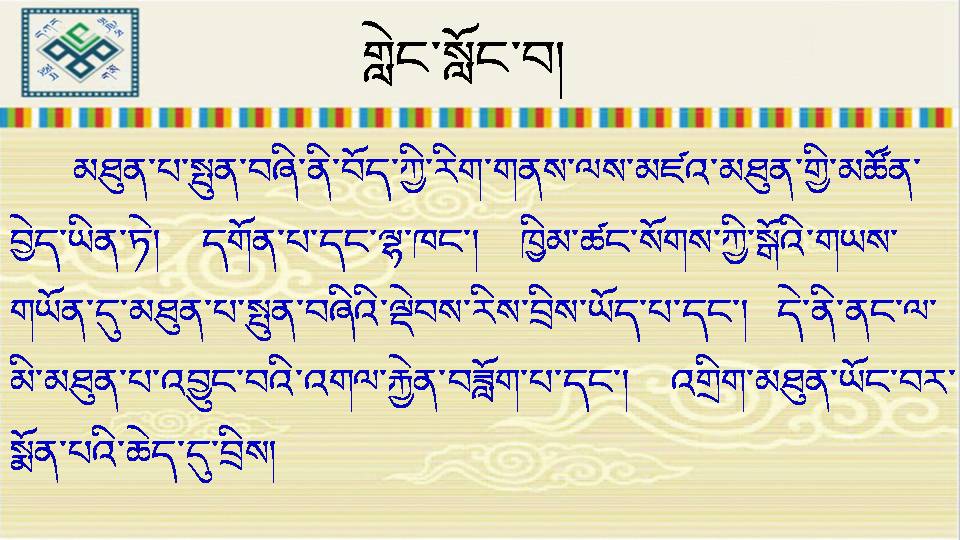 གླེང་སློང་བ།
མཐུན་པ་སྤུན་བཞི་ནི་བོད་ཀྱི་རིག་གནས་ལས་མཛའ་མཐུན་གྱི་མཚོན་
བྱེད་ཡིན་ཏེ། དགོན་པ་དང་ལྷ་ཁང་། ཁྱིམ་ཚང་སོགས་ཀྱི་སྒོའི་གཡས་
གཡོན་དུ་མཐུན་པ་སྤུན་བཞིའི་ལྡེབས་རིས་བྲིས་ཡོད་པ་དང་། དེ་ནི་ནང་ལ་
མི་མཐུན་པ་འབྱུང་བའི་འགལ་རྐྱེན་བཟློག་པ་དང་། འགྲིག་མཐུན་ཡོང་བར་
སྨོན་པའི་ཆེད་དུ་བྲིས།